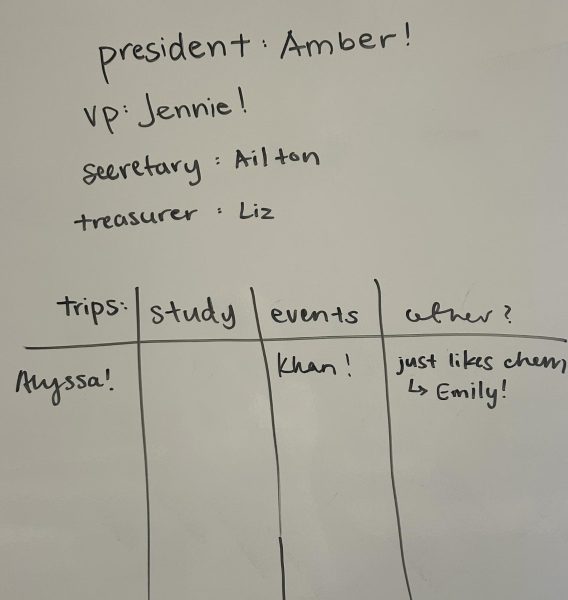 president: Amber!
vp: Jennie!
secretary: Ailton
treasurer: Liz
trips: study events other?
Alyssa! Khan! just likes chem
↳ Emily!